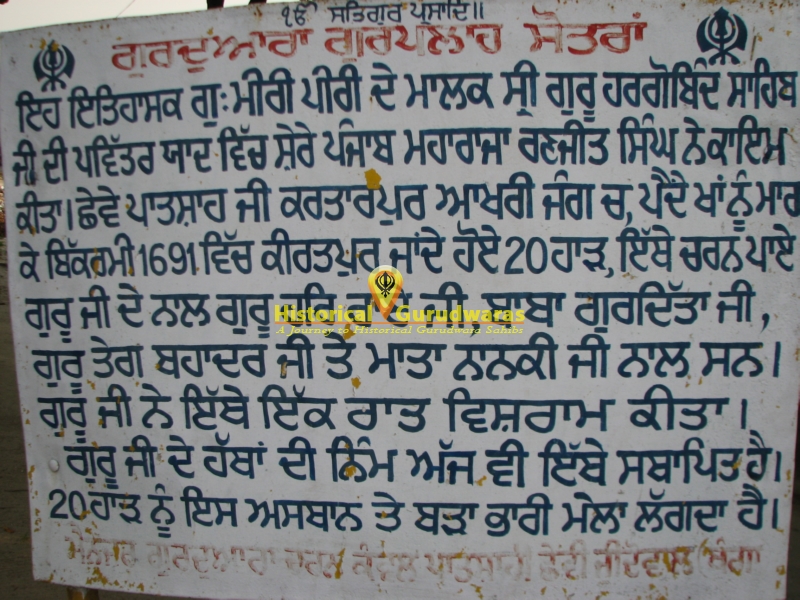 ੴ ਸਤਿਗੁਰ ਪ੍ਰਸਾਦਿ॥
ਗੁਰਦੁਆਰਾ ਗੁਰਪਲਾਹ ਸੋਤਰਾਂ
ਇਹ ਇਤਿਹਾਸਕ ਗੁਃ ਮੀਰੀ ਪੀਰੀ ਦੇ ਮਾਲਕ ਸ੍ਰੀ ਗੁਰੂ ਹਰਗੋਬਿੰਦ ਸਾਹਿਬ
ਜੀ ਦੀ ਪਵਿੱਤਰ ਯਾਦ ਵਿੱਚ ਸ਼ੇਰੇ ਪੰਜਾਬ ਮਹਾਰਾਜਾ ਰਣਜੀਤ ਸਿੰਘ ਨੇ ਕਾਇਮ
ਕੀਤਾ। ਛੇਵੇ ਪਾਤਸ਼ਾਹ ਜੀ ਕਰਤਾਰਪੁਰ ਆਖਰੀ ਜੰਗ ਚ, ਪੈਂਦੇ ਖਾਂ ਨੂੰ ਮਾਰ
ਕੇ ਬਿੱਕਰਮੀ 1691 ਵਿੱਚ ਕੀਰਤਪੁਰ ਜਾਂਦੇ ਹੋਏ 20 ਹਾੜ, ਇੱਥੇ ਚਰਨ ਪਾਏ
ਗੁਰੂ ਜੀ ਦੇ ਨਾਲ ਗੁਰੂ ਹਰਿ ਜੀ, ਬਾਬਾ ਗੁਰਦਿੱਤਾ ਜੀ,
Historical Gurudwaras
A Journey to Historical Gurudwara Sahibs
ਗੁਰੂ ਤੇਗ ਬਹਾਦਰ ਜੀ ਤੇ ਮਾਤਾ ਨਾਨਕੀ ਜੀ ਨਾਲ ਸਨ।
ਗੁਰੂ ਜੀ ਨੇ ਇੱਥੇ ਇੱਕ ਰਾਤ ਵਿਸ਼ਰਾਮ ਕੀਤਾ।
ਗੁਰੂ ਜੀ ਦੇ ਹੱਥਾਂ ਦੀ ਨਿੰਮ ਅੱਜ ਵੀ ਇੱਥੇ ਸਥਾਪਿਤ ਹੈ।
20 ਹਾੜ ਨੂੰ ਇਸ ਅਸਥਾਨ ਤੇ ਬੜਾ ਭਾਰੀ ਮੇਲਾ ਲੱਗਦਾ ਹੈ।
ਗੁਰਦੁਆਰਾ ਪਾਤਸ਼ਾਹੀ